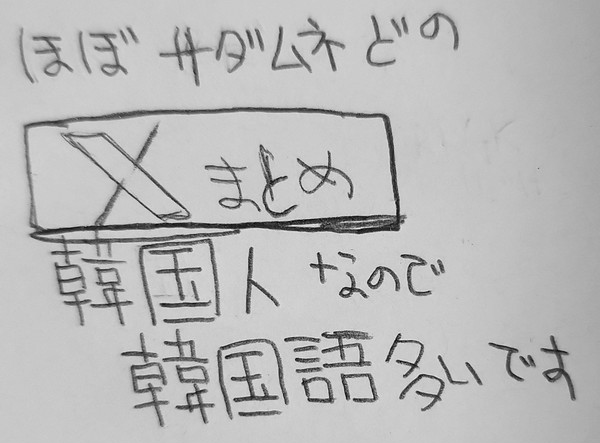 ほぼサダムネどの
Xまとめ
韓国人なので
韓国語多いです